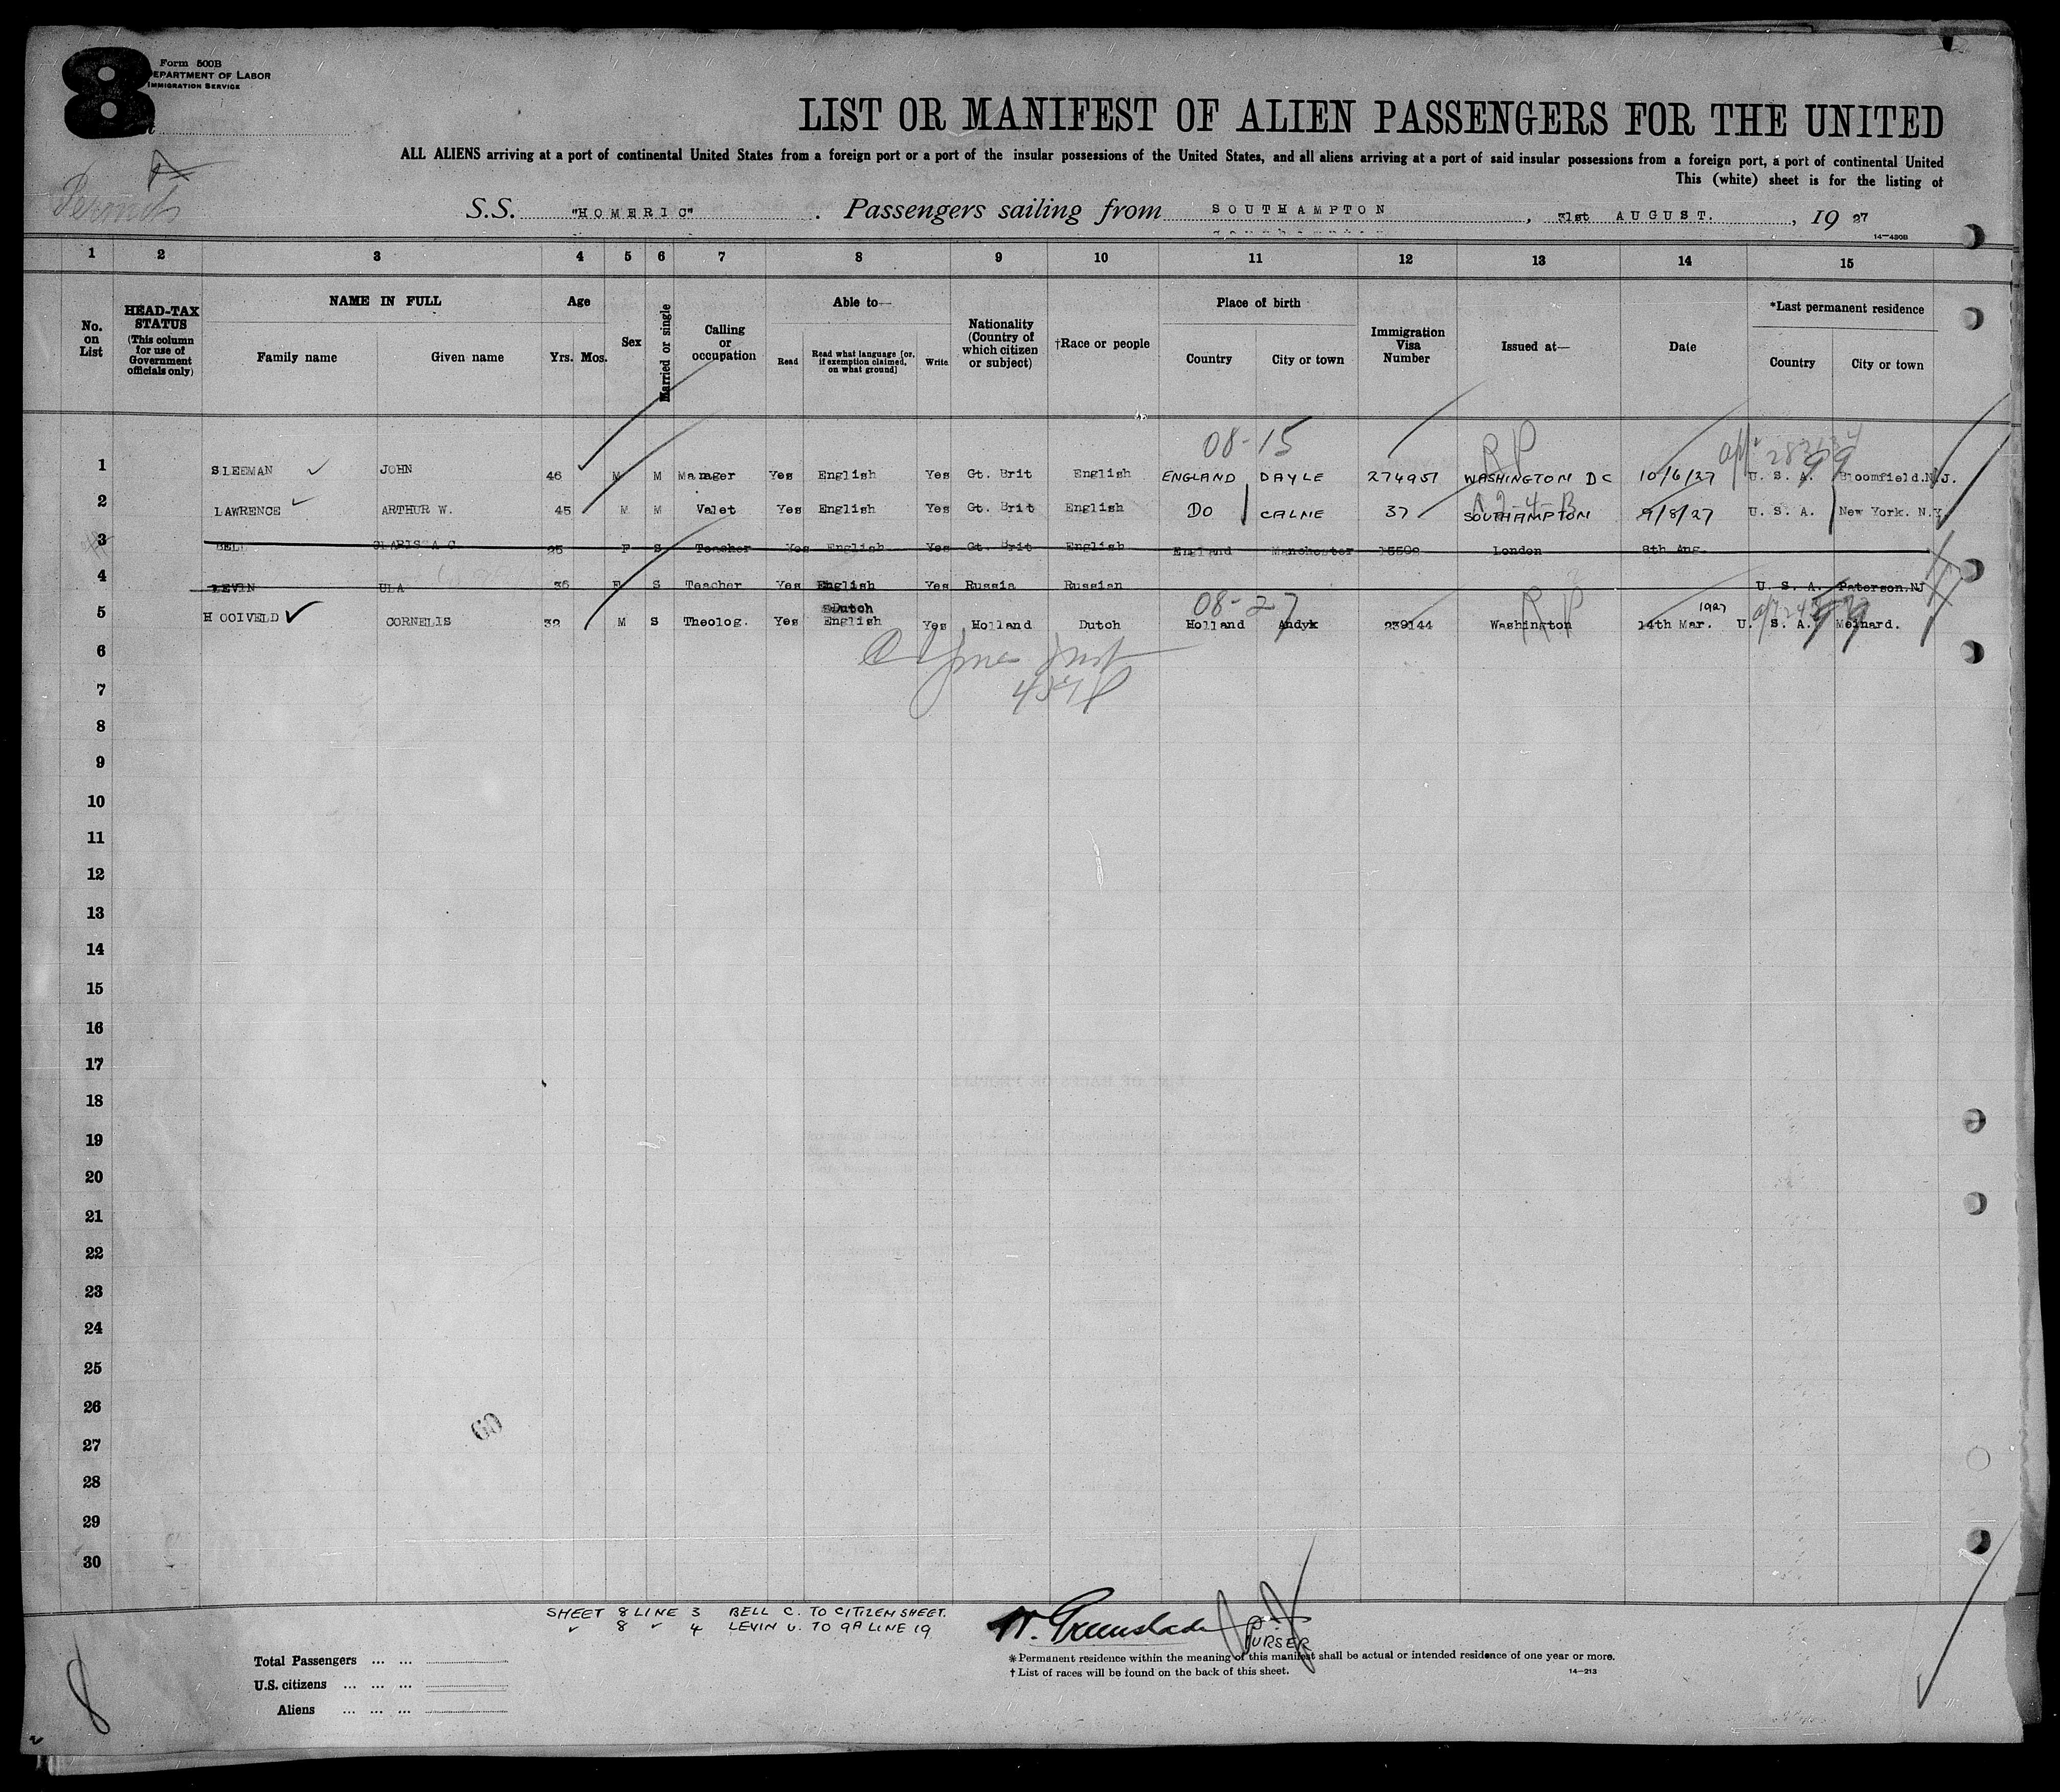 8
Form 500B
DEPARTMENT OF LABOR
IMMIGRATION SERVICE
LIST OR MANIFEST OF ALIEN PASSENGERS FOR THE UNITED
ALL ALIENS arriving at a port of continental United States from a foreign port or a port of the insular possessions of the United States, and all aliens arriving at a port of said insular possessions from a foreign port, a port of continental United
This (white) sheet is for the listing of
Permits
S.S. "HOMERIC" Passengers sailing from SOUTHAMPTON, 31st AUGUST., 19 27
14—430B
1 2 3 4 5 6 7 8 9 10 11 12 13 14 15
No. on List
HEAD-TAX STATUS (This column for use of Government officials only)
NAME IN FULL
Family name Given name
Age
Yrs. Mos.
Sex
Married or single
Calling or occupation
Able to—
Read
Read what language [or, if exemption claimed, on what ground]
Write
Nationality (Country of which citizen or subject)
†Race or people
Place of birth
Country City or town
Immigration Visa Number
Issued at—
Date
*Last permanent residence
Country City or town
08-15 RP
1 SLEEMAN JOHN 46 M M Manager Yes English Yes Gt. Brit English ENGLAND DAYLE 274951 WASHINGTON DC 10/6/27 U. S. A. Bloomfield.N.J.
2 LAWRENCE ARTHUR W. 45 M M Valet Yes English Yes Gt. Brit English DO CALNE 37 SOUTHAMPTON 9/8/27 U. S. A. New York. N.Y.
3 BELL CLARISSA C 25 F S Teacher Yes English Yes Gt. Brit English England Manchester London 8th Aug.
4 LEVIN ULA 36 F S Teacher Yes English Yes Russia Russian U. S. A. Paterson.NJ
Dutch 08-27 RP 1927
5 HOOIVELD CORNELIS 32 M S Theolog. Yes English Yes Holland Dutch Holland Andyk 239144 Washington 14th Mar. U. S. A. Meinard.
6
7
8
9
10
11
12
13
14
15
16
17
18
19
20
21
22
23
24
25
26
60
27
28
29
30
SHEET 8 LINE 3 BELL C. TO CITIZEN SHEET.
8 4 LEVIN U. TO 9A LINE 19
W. Greenslade
PURSER
Total Passengers ... ...
U.S. citizens ... ... ...
Aliens ... ... ...
*Permanent residence within the meaning of this manifest shall be actual or intended residence of one year or more.
†List of races will be found on the back of this sheet.
14—213
8